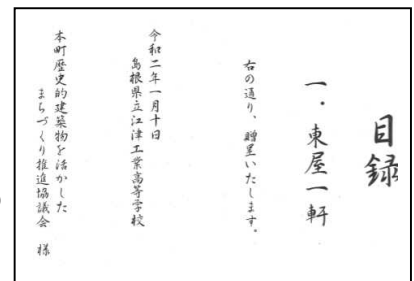 目録
一．東屋一軒
右の通り、贈呈いたします。
令和二年一月十日
島根県立江津工業高等学校
本町歴史的建築物を活かした
まちづくり推進協議会 様